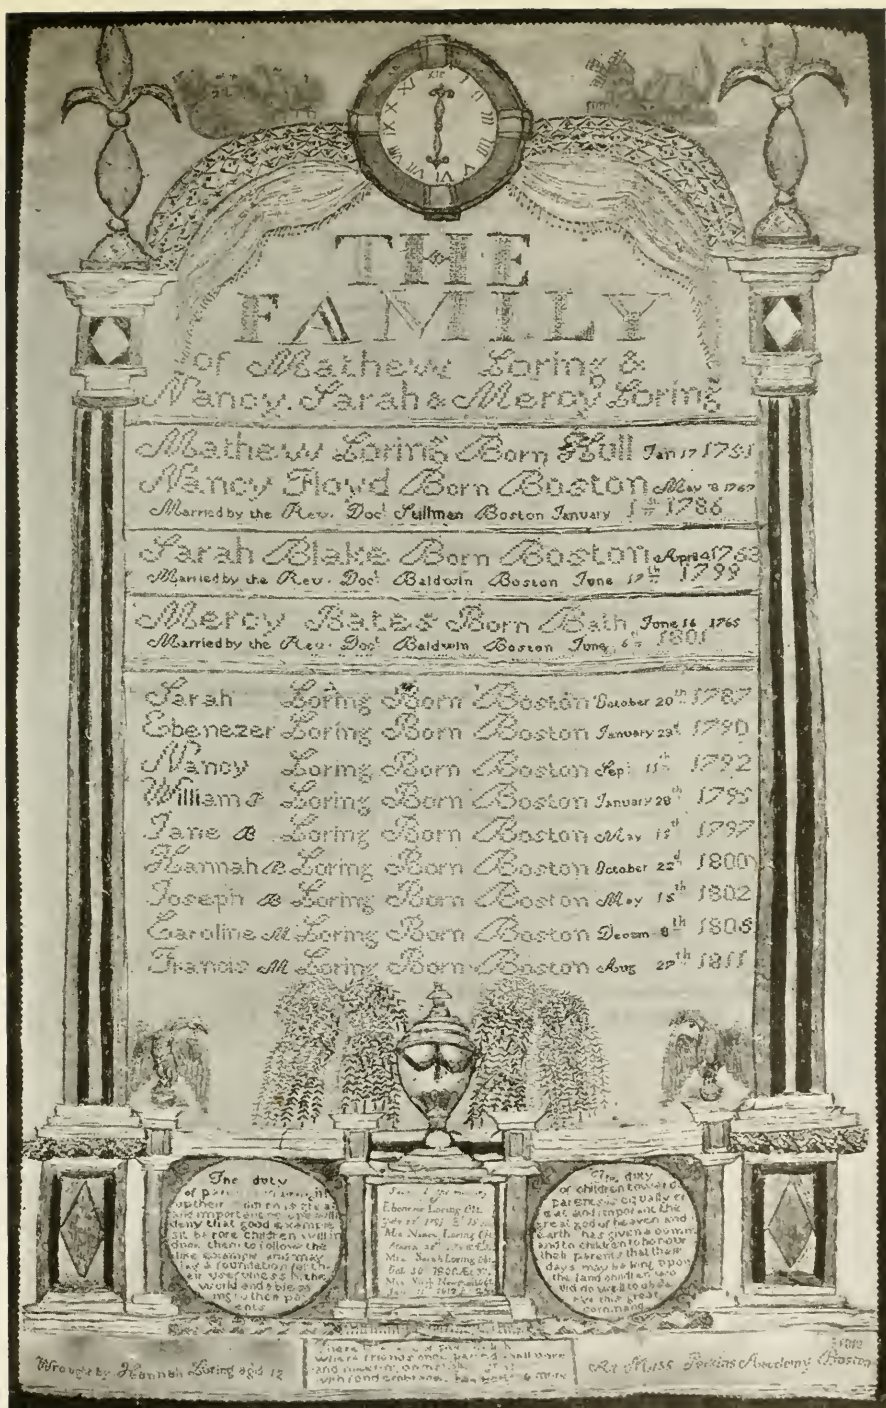 THE
FAMILY
of Mathew Loring &
Nancy. Sarah & Mercy Loring
Mathew Loring Born Hull Jan 17 1751
Nancy Floyd Born Boston May 1767
Married by the Rev. Doct Stillman Boston January 1st 1786
Sarah Blake Born Boston April 4 1763
Married by the Rev. Doct Baldwin Boston June 17th 1799
Mercy Bates Born Bath June 16 1765
Married by the Rev. Doct Baldwin Boston June 6th 1801
Sarah Loring Born Boston October 20th 1787
Ebenezer Loring Born Boston January 23d 1790
Nancy Loring Born Boston Sept 11th 1792
William Loring Born Boston January 28th 1795
Jane B Loring Born Boston May 15th 1797
Hannah B Loring Born Boston October 22d 1800
Joseph B Loring Born Boston May 15th 1802
Caroline M Loring Born Boston Decem 8th 1806
Francis M Loring Born Boston Aug 27th 1811
The duty
of
up their children is great
and important no one will
deny that good example
set before children will in
duce them to follow the
like example and may
lay a foundation for the
eir usefulness in the
world and a bless
ing to their par
ents
Ebenezer Loring Obt.
Mrs Nancy Loring Obt
Mrs. Sarah Loring Obt.
Oct 10 1800
Mrs
1812
The duty
of children toward
parents is equally gr
eat and important the
great god of heaven and
earth has given a comm
and to children to honour
their parents that their
days may be long upon
the land children wo
uld do well to obse
rve this great
command
Where friends once parted shall
with fond embraces & more
Wrought by Hannah Loring aged 12
At Miss Perkins Academy Boston
1812